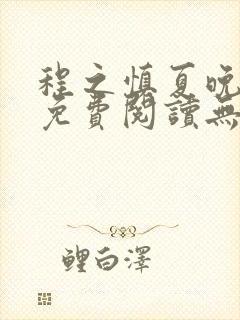 程之慎夏晚
免費閱讀無
鯉白澤